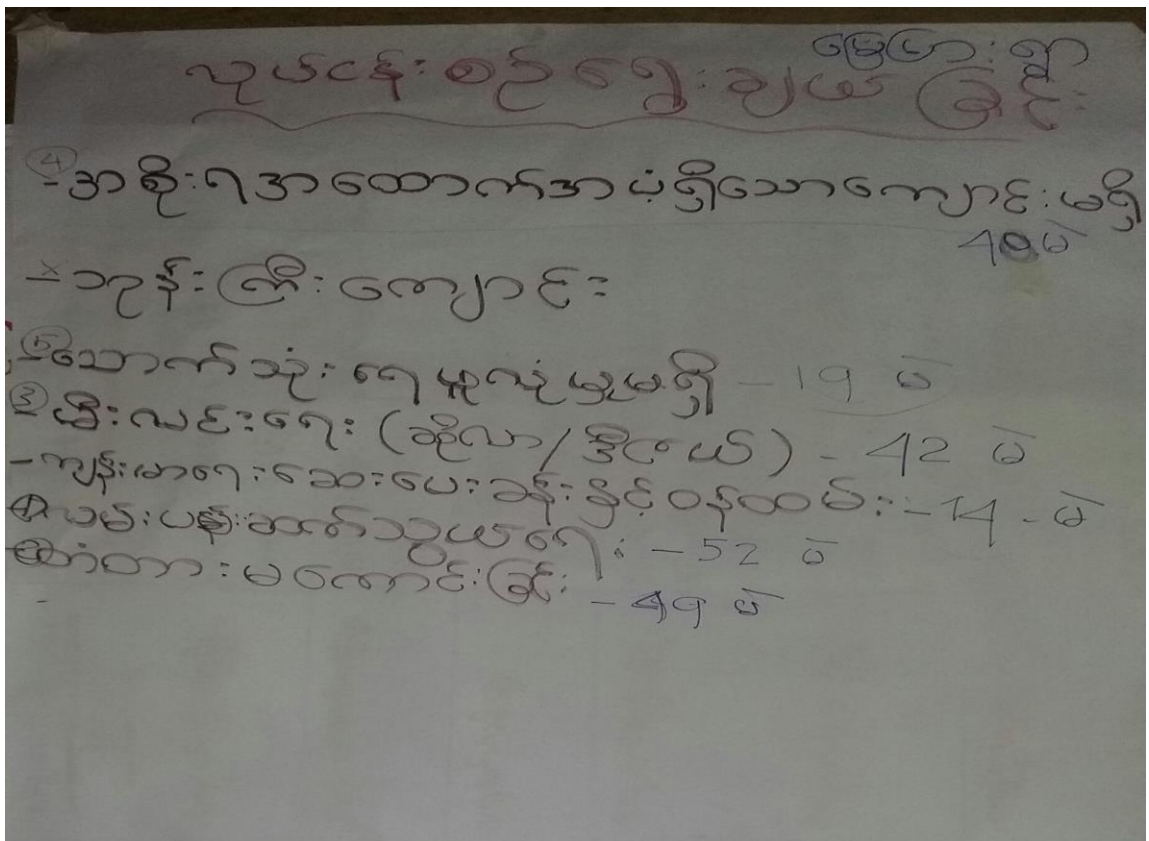 မြေပြားရွာ
လုပ်ငန်းစဉ်ရွေးချယ်ခြင်း
④ - အစိုးရအထောက်အပံ့ရှိသောကျောင်းမရှိ
40 မဲ
-× ဘုန်းကြီးကျောင်း
⑤ - သောက်သုံးရေမလုံမှုမရှိ - 19 မဲ
③ - မီးလင်းရေး (ဆိုလာ/ဒီဇယ်) - 42 မဲ
- ကျန်းမာရေးဆေးပေးခန်းနှင့်ဝန်ထမ်း - 14 - မဲ
① လမ်းပန်းဆက်သွယ်ရေး - 52 မဲ
② တံတားမကောင်းခြင်း - 49 မဲ